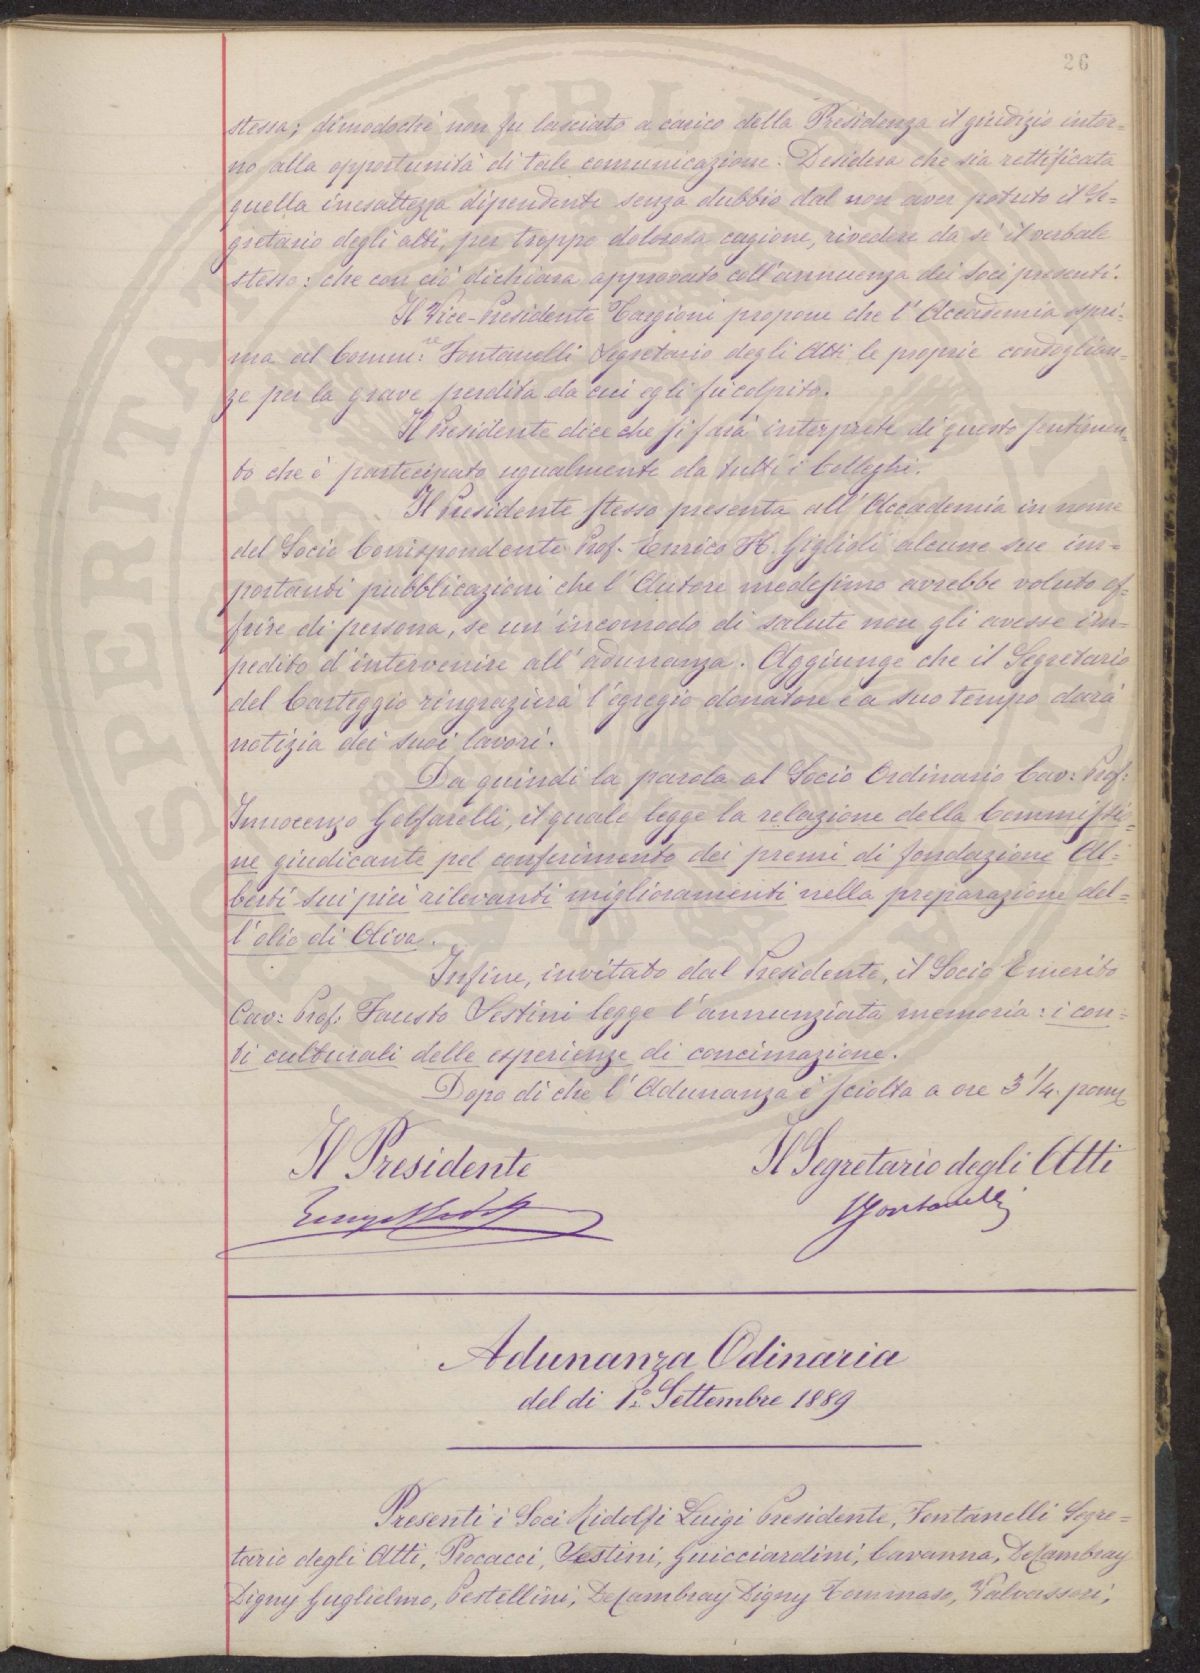 26
stessa; dimodoché non fu lasciato a carico della Presidenza il giudizio intor=
no alla opportunità di tale comunicazione. Desidera che sia rettificata
quella inesattezza dipendente senza dubbio dal non aver potuto il Se=
gretario degli atti, per troppo dolorosa cagione, rivedere da sé il verbale
stesso: che con ciò dichiara approvato coll'annuenza dei soci presenti.
Il Vice-Presidente Targioni propone che l'Accademia espri=
ma al Comm:re Fontanelli Segretario degli Atti le proprie condoglian=
ze per la grave perdita da cui egli fu colpito.
Il Presidente dice che si farà interprete di questo sentimen=
to che è partecipato ugualmente da tutti i Colleghi.
Il Presidente stesso presenta all'Accademia in nome
del Socio Corrispondente Prof. Enrico H. Giglioli alcune sue im=
portanti pubblicazioni che l'Autore medesimo avrebbe voluto of=
frire di persona, se un'incomodo di salute non gli avesse im=
pedito d'intervenire all'adunanza. Aggiunge che il Segretario
del Carteggio ringrazierà l'egregio donatore e a suo tempo darà
notizia dei suoi lavori.
Da quindi la parola al Socio Ordinario Cav: Prof:
Innocenzo Golfarelli, il quale legge la relazione della Commissio=
ne giudicante pel conferimento dei premi di fondazione Al=
berti sui più rilevanti miglioramenti nella preparazione del=
l'olio di Oliva.
Infine, invitato dal Presidente, il Socio Emerito
Cav: Prof. Fausto Sestini legge l'annunziata memoria: i con=
ti culturali delle esperienze di concimazione.
Dopo di che l'Adunanza è sciolta a ore 3 1/4. pom.
Il Presidente Il Segretario degli Atti
Fontanelli
Adunanza Odinaria
del dì 1º Settembre 1889
Presenti i Soci Ridolfi Luigi Presidente, Fontanelli Segre=
tario degli Atti, Procacci, Sestini, Guicciardini, Cavanna, De Cambray
Digny Guglielmo, Pestellini, De Cambray Digny Tommaso, Valvassori,